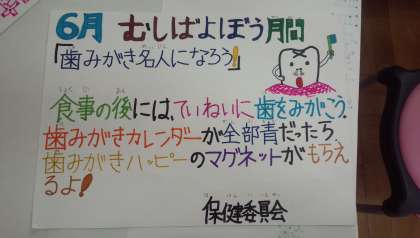 6月 むしばよぼう月間
「歯みがき名人になろう!」
食事の後には、ていねいに歯をみがこう。
歯みがきカレンダーが全部青だったら、
歯みがきハッピーのマグネットがもらえ
るよ!
保健委員会